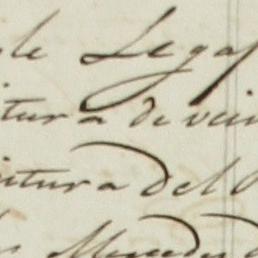 de Legas
itura de vein
intura del
Mercedes